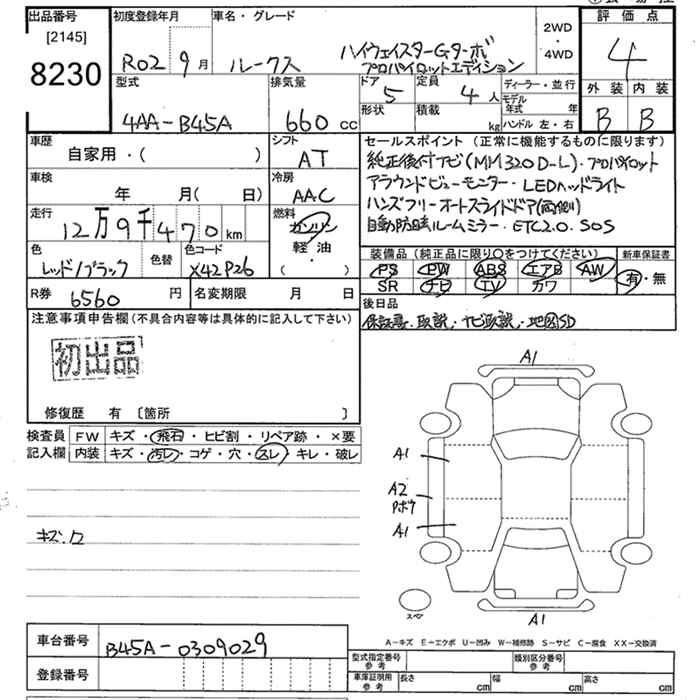 出品番号
[2145]
8230
初度登録年月
R02 9月
車名・グレード
ルークス
ハイウェイスターGターボ
プロパイロットエディション
2WD
・
4WD
評価点
4
外装 内装
B B
型式
4AA-B45A
排気量
660 cc
ドア
5
定員
4人
形状
積載
kg
ディーラー・並行
モデル年式 年
ハンドル 左・右
車歴
自家用・( )
シフト
AT
車検
年 月(日)
冷房
AAC
走行
12万9千470km
燃料
ガソリン
軽・油
( )
色
レッド/ブラック
色替
色コード
X42P26
R券 6560円
名変期限 月 日
セールスポイント(正常に機能するものに限ります)
純正後付ナビ(MM320D-L)・プロパイロット
アラウンドビューモニター・LEDヘッドライト
ハンズフリーオートスライドドア(両側)
自動防眩ルームミラー・ETC2.0・SOS
装備品(純正品に限り○をつけてください)
PS PW ABS エアB AW
SR ナビ TV カワ
新車保証書
有・無
後日品
保証書・取説・ナビ取説・地図SD
注意事項申告欄(不具合内容等は具体的に記入して下さい)
初出品
修復歴 有 〔箇所 〕
検査員
記入欄
FW キズ・飛石・ヒビ割・リペア跡・×要
内装 キズ・汚レ・コゲ・穴・スレ・キレ・破レ
キズ.ワ
A1
A1
A2
Pボウ
A1
スペア
A1
A-キズ E-エクボ U-凹み W-補修跡 S-サビ C-腐食 XX-交換済
車台番号
B45A-0309029
登録番号
型式指定番号
参考
類別区分番号
参考
車庫証明用
参考
長さ cm
幅 cm
高さ cm